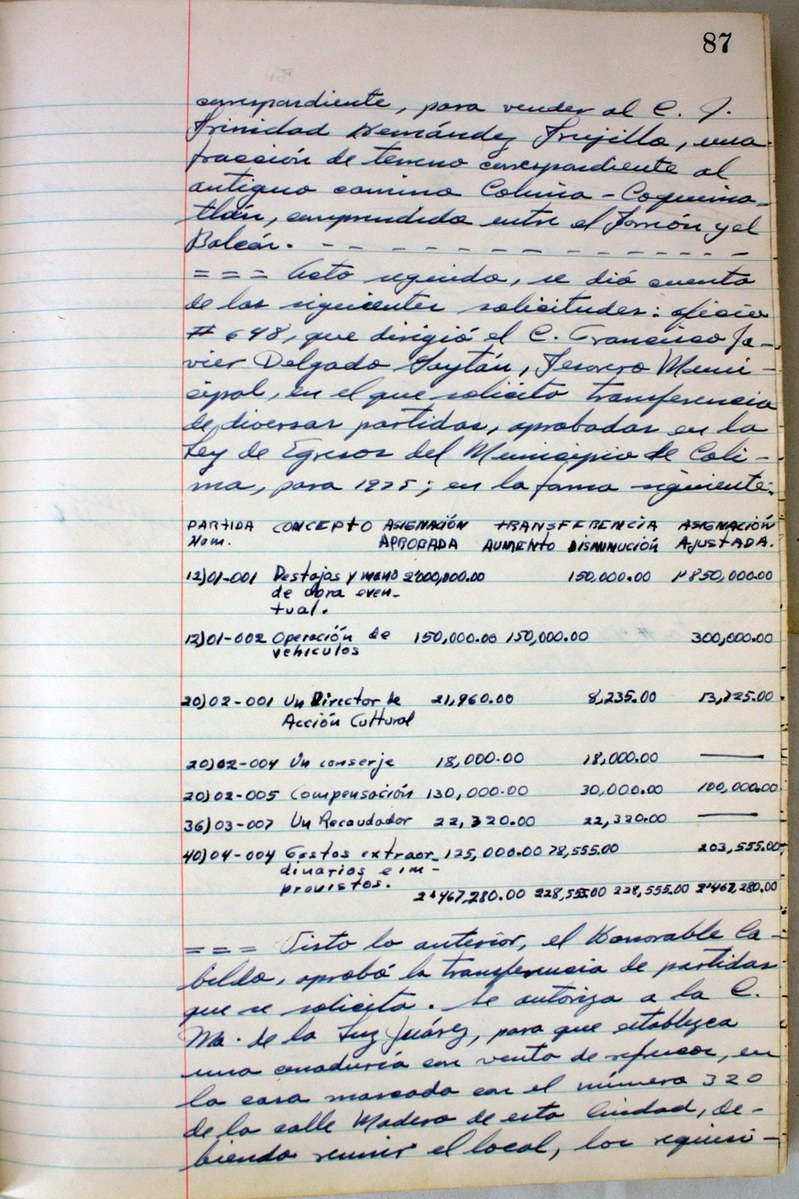 87
correspondiente, para vender al C. J.
Trinidad Hernández Trujillo, una
fracción de terreno correspondiente al
antiguo camino Colima - Coquima-
tlán, comprendido entre el Torreón y el
Balcón. - - - - - - - - - - - - -
= = = Acto seguido, se dió cuenta
de las siguientes solicitudes: oficio
# 648, que dirigió el C. Francisco Ja-
vier Delgado Gaytán, Tesorero Muni-
cipal, en el que solicita transferencia
de diversas partidas, aprobadas en la
Ley de Egresos del Municipio de Coli-
ma, para 1975; en la forma siguiente:
PARTIDA CONCEPTO ASIGNACIÓN TRANSFERENCIA ASIGNACIÓN
Núm. APROBADA AUMENTO DISMINUCIÓN AJUSTADA.
12)01-001 Destajos y mano 2'000,000.00 150,000.00 1'850,000.00
de obra even-
tual.
12)01-002 Operación de 150,000.00 150,000.00 300,000.00
vehículos
20)02-001 Un Director de 21,960.00 8,235.00 13,725.00
Acción Cultural
20)02-004 Un conserje 18,000.00 18,000.00 ———
20)02-005 Compensación 130,000.00 30,000.00 100,000.00
36)03-007 Un Recaudador 22,320.00 22,320.00 ———
40)04-004 Gastos extraor- 125,000.00 78,555.00 203,555.00
dinarios e im-
previstos.
2'467,280.00 228,555.00 228,555.00 2'467,280.00
= = = Visto lo anterior, el Honorable Ca-
bildo, aprobó la transferencia de partidas
que se solicita. Se autoriza a la C.
Ma. de la Luz Juárez, para que establezca
una cenaduría con venta de refrescos, en
la casa marcada con el número 320
de la calle Madero de esta Ciudad, de-
biendo reunir el local, los requisi-